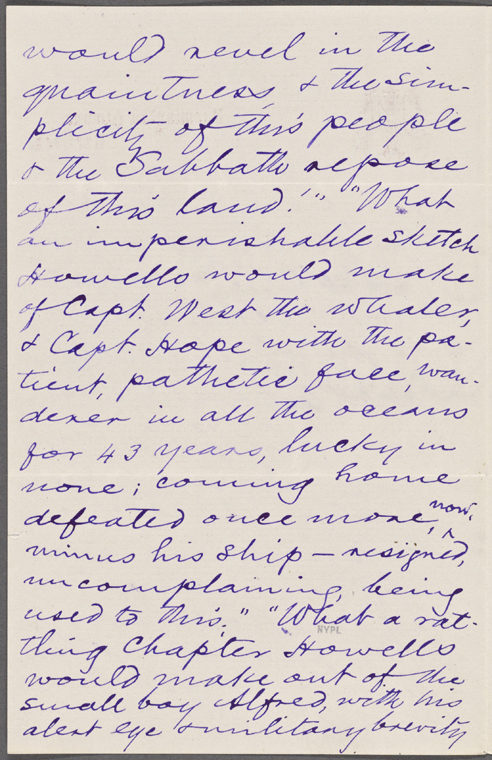 would revel in the
quaintness & the sim-
plicity of this people
& the Sabbath repose
of this land.'" "What
an imperishable sketch
Howells would make
of Capt. West the whaler,
& Capt. Hope with the pa-
tient, pathetic face, wan-
derer in all the oceans
for 43 years, lucky in
none; coming home
defeated once more, now,
minus his ship — resigned,
uncomplaining, being
used to this." "What a rat-
NYPL
tling chapter Howells
would make out of the
small boy Alfred, with his
alert eye & military brevity